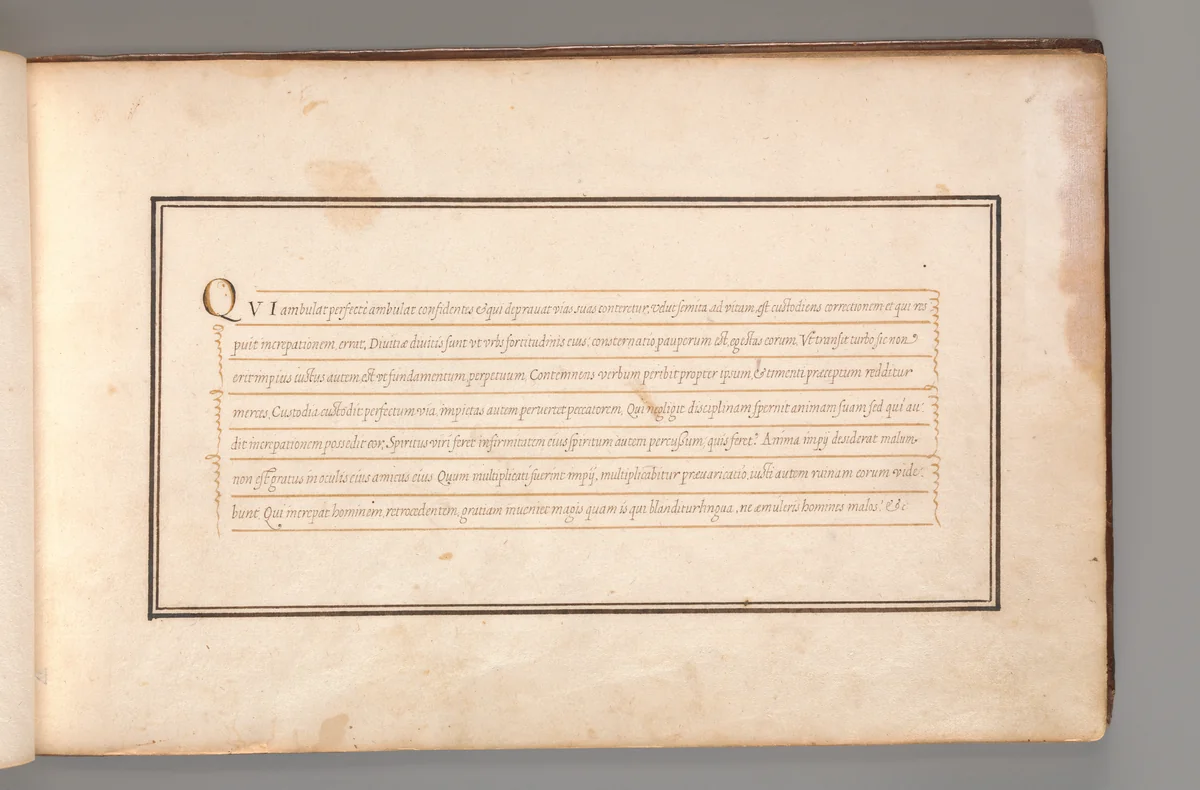 QVI ambulat perfecte ambulat confidentes & qui depravat vias suas conteretur, velut semita ad vitam, est custodiens correctionem et qui res
puit increpationem, errat, Divitiæ divitis sunt vt vrbs fortitudinis eius; consternatio pauperum est, egestas eorum. Vt transit turbo sic non
erit impius iustus autem est vt fundamentum, perpetuum, Contemnens verbum peribit propter ipsum, & timenti præceptum redditur
merces, Custodia custodit perfectum via, impietas autem pervertet peccatorem, Qui negligit disciplinam spernit animam suam sed qui au-
dit increpationem possedit cor, Spiritus viri feret infirmitatem eius spiritum autem percussum, quis feret? Anima impij desiderat malum
non est gratus in oculis eius amicus eius Quum multiplicati fuerint impij, multiplicabitur prævaricatio, iusti autem ruinam eorum vide-
bunt, Qui increpat hominem, retrocedentem, gratiam inveniet magis quam is qui blanditur lingua, ne æmuleris homines malos! &c